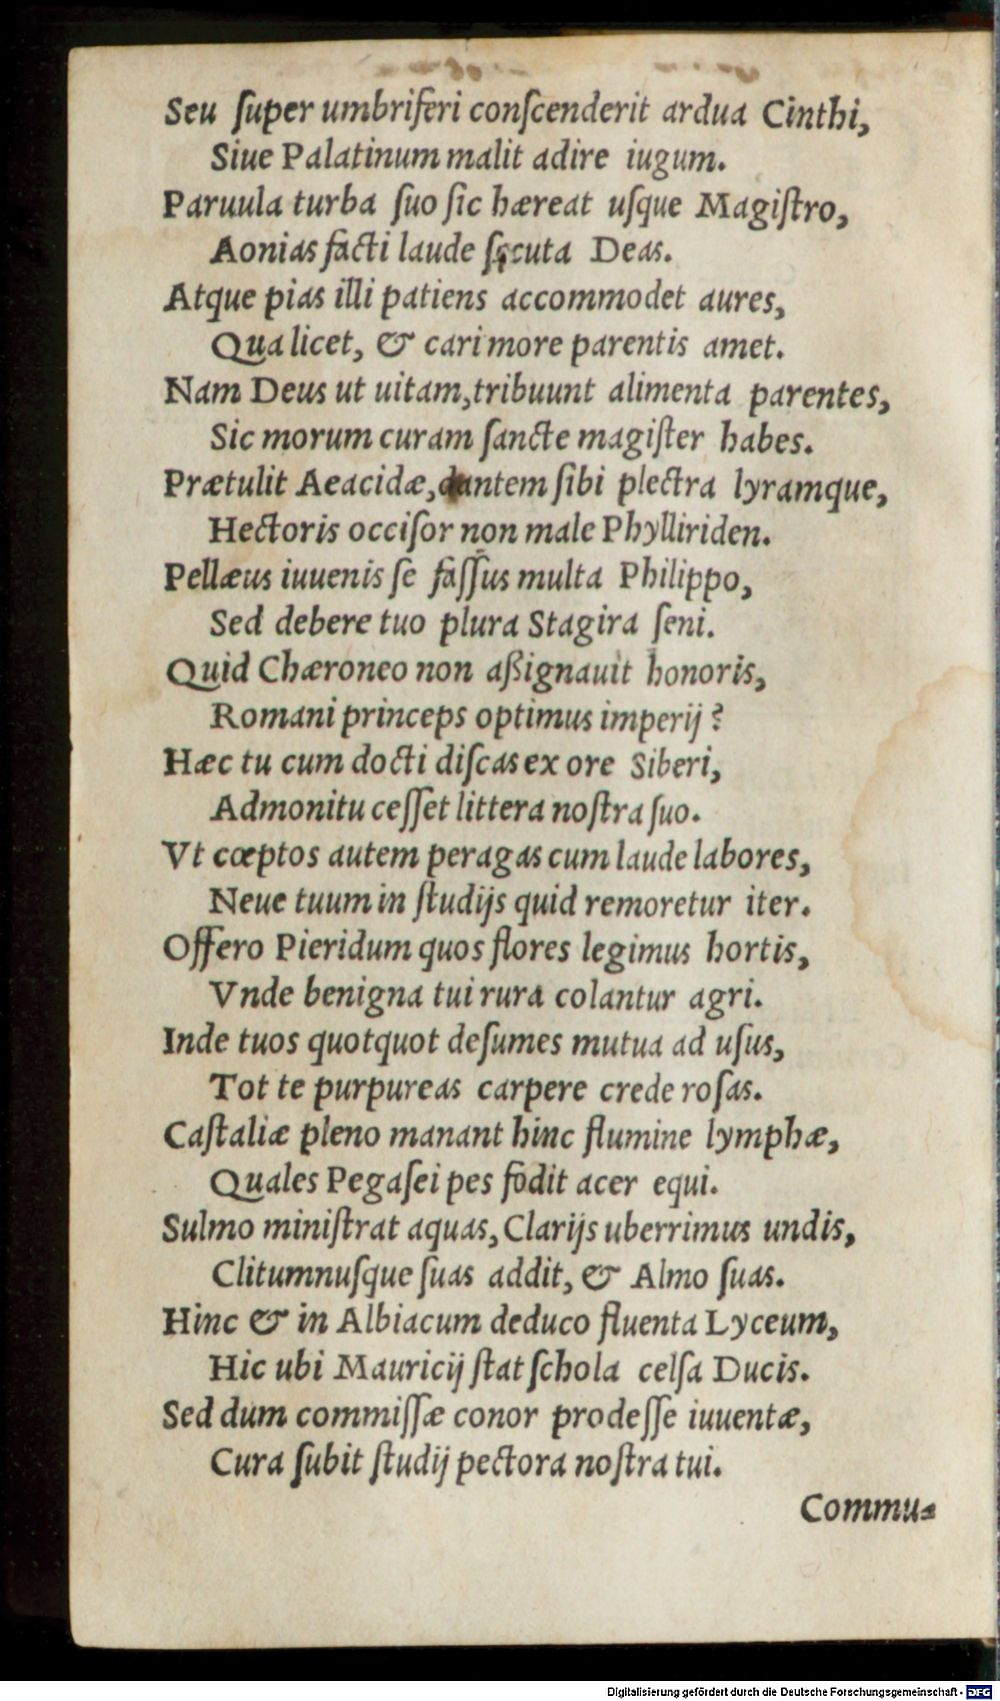 Seu ſuper umbriferi conſcenderit ardua Cinthi,
Siue Palatinum malit adire iugum.
Paruula turba ſuo ſic hæreat uſque Magiſtro,
Aonias facti laude ſecuta Deas.
Atque pias illi patiens accommodet aures,
Qua licet, & cari more parentis amet.
Nam Deus ut uitam, tribuunt alimenta parentes,
Sic morum curam ſancte magiſter habes.
Prætulit Aeacidæ, dantem ſibi plectra lyramque,
Hectoris occiſor non male Phylliriden.
Pellæus iuuenis ſe faſſus multa Philippo,
Sed debere tuo plura Stagira ſeni.
Quid Chæroneo non aßignauit honoris,
Romani princeps optimus imperij?
Hæc tu cum docti diſcas ex ore Siberi,
Admonitu ceſſet littera noſtra ſuo.
Vt cœptos autem peragas cum laude labores,
Neue tuum in ſtudijs quid remoretur iter.
Offero Pieridum quos flores legimus hortis,
Vnde benigna tui rura colantur agri.
Inde tuos quotquot deſumes mutua ad uſus,
Tot te purpureas carpere crede roſas.
Caſtaliæ pleno manant hinc flumine lymphæ,
Quales Pegaſei pes fodit acer equi.
Sulmo miniſtrat aquas, Clarijs uberrimus undis,
Clitumnuſque ſuas addit, & Almo ſuas.
Hinc & in Albiacum deduco fluenta Lyceum,
Hic ubi Mauricij ſtat ſchola celſa Ducis.
Sed dum commiſſæ conor prodeſſe iuuentæ,
Cura ſubit ſtudij pectora noſtra tui.
Commu⸗
Digitalisierung gefördert durch die Deutsche Forschungsgemeinschaft - DFG